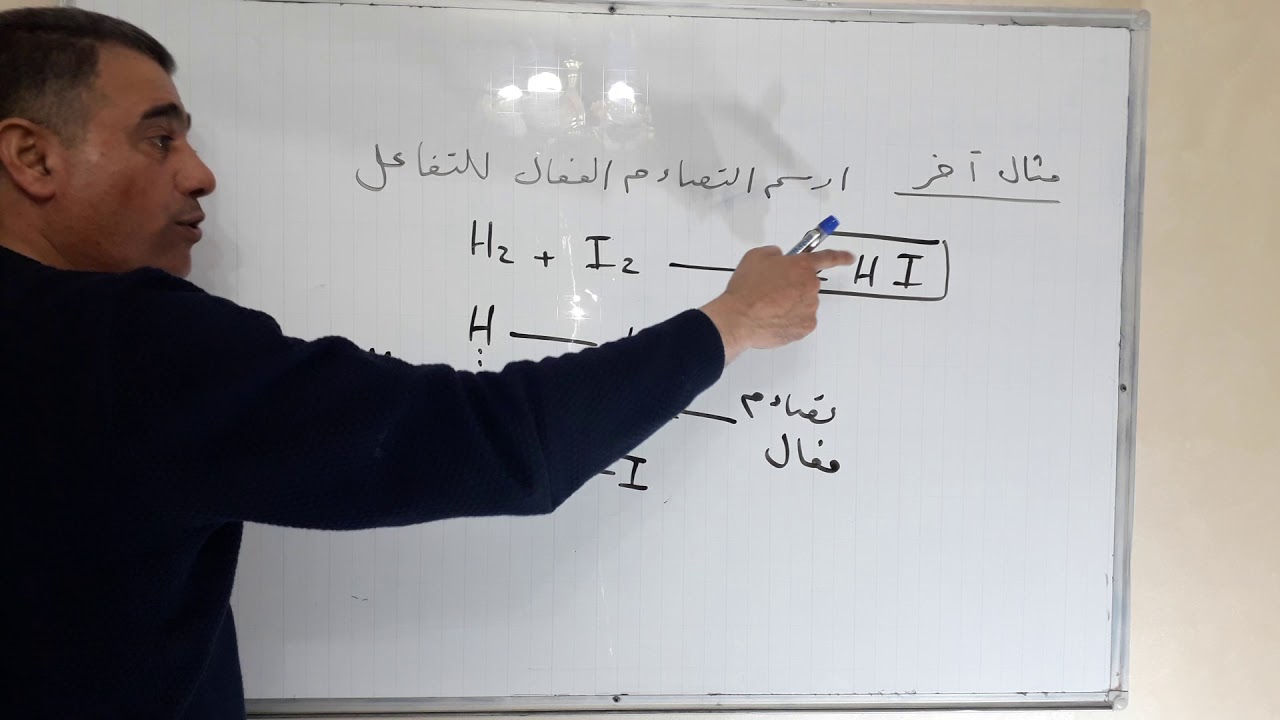 مثال آخر ارسم التصادم الفعال للتفاعل
H₂ + I₂ — H I
H —
تصادم
فعال
I